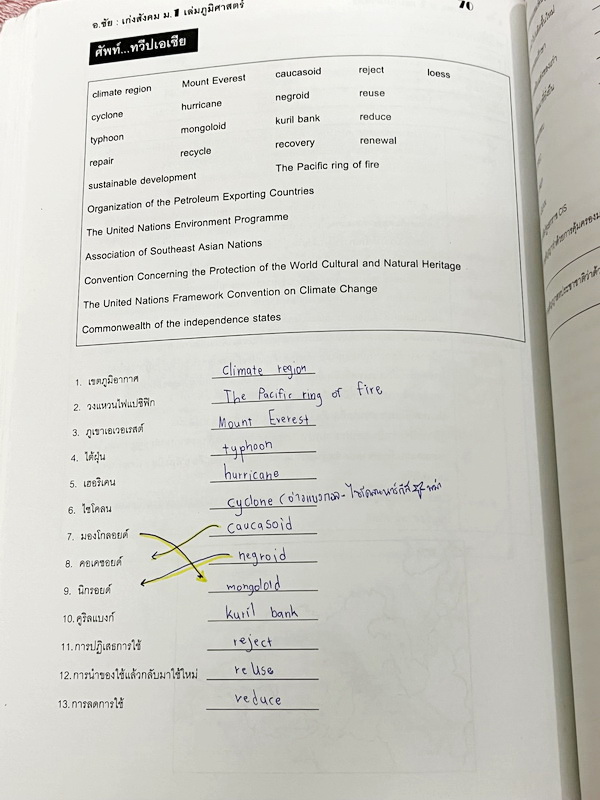 อ.ชัย : เก่งสังคม ม.1 เล่มภูมิศาสตร์ 70
ศัพท์...ทวีปเอเชีย
climate region Mount Everest caucasoid reject loess
cyclone hurricane negroid reuse
typhoon mongoloid kuril bank reduce
repair recycle recovery renewal
sustainable development The Pacific ring of fire
Organization of the Petroleum Exporting Countries
The United Nations Environment Programme
Association of Southeast Asian Nations
Convention Concerning the Protection of the World Cultural and Natural Heritage
The United Nations Framework Convention on Climate Change
Commonwealth of the independence states
1. เขตภูมิอากาศ climate region
2. วงแหวนไฟแปซิฟิก The Pacific ring of fire
3. ภูเขาเอเวอเรสต์ Mount Everest
4. ไต้ฝุ่น typhoon
5. เฮอริเคน hurricane
6. ไซโคลน cyclone (อ่าวเบงกอล-
7. มองโกลอยด์ caucasoid
8. คอเคซอยด์ negroid
9. นิกรอยด์ mongoloid
10. คูริลแบงก์ kuril bank
11. การปฏิเสธการใช้ reject
12. การนำของใช้แล้วกลับมาใช้ใหม่ reuse
13. การลดการใช้ reduce